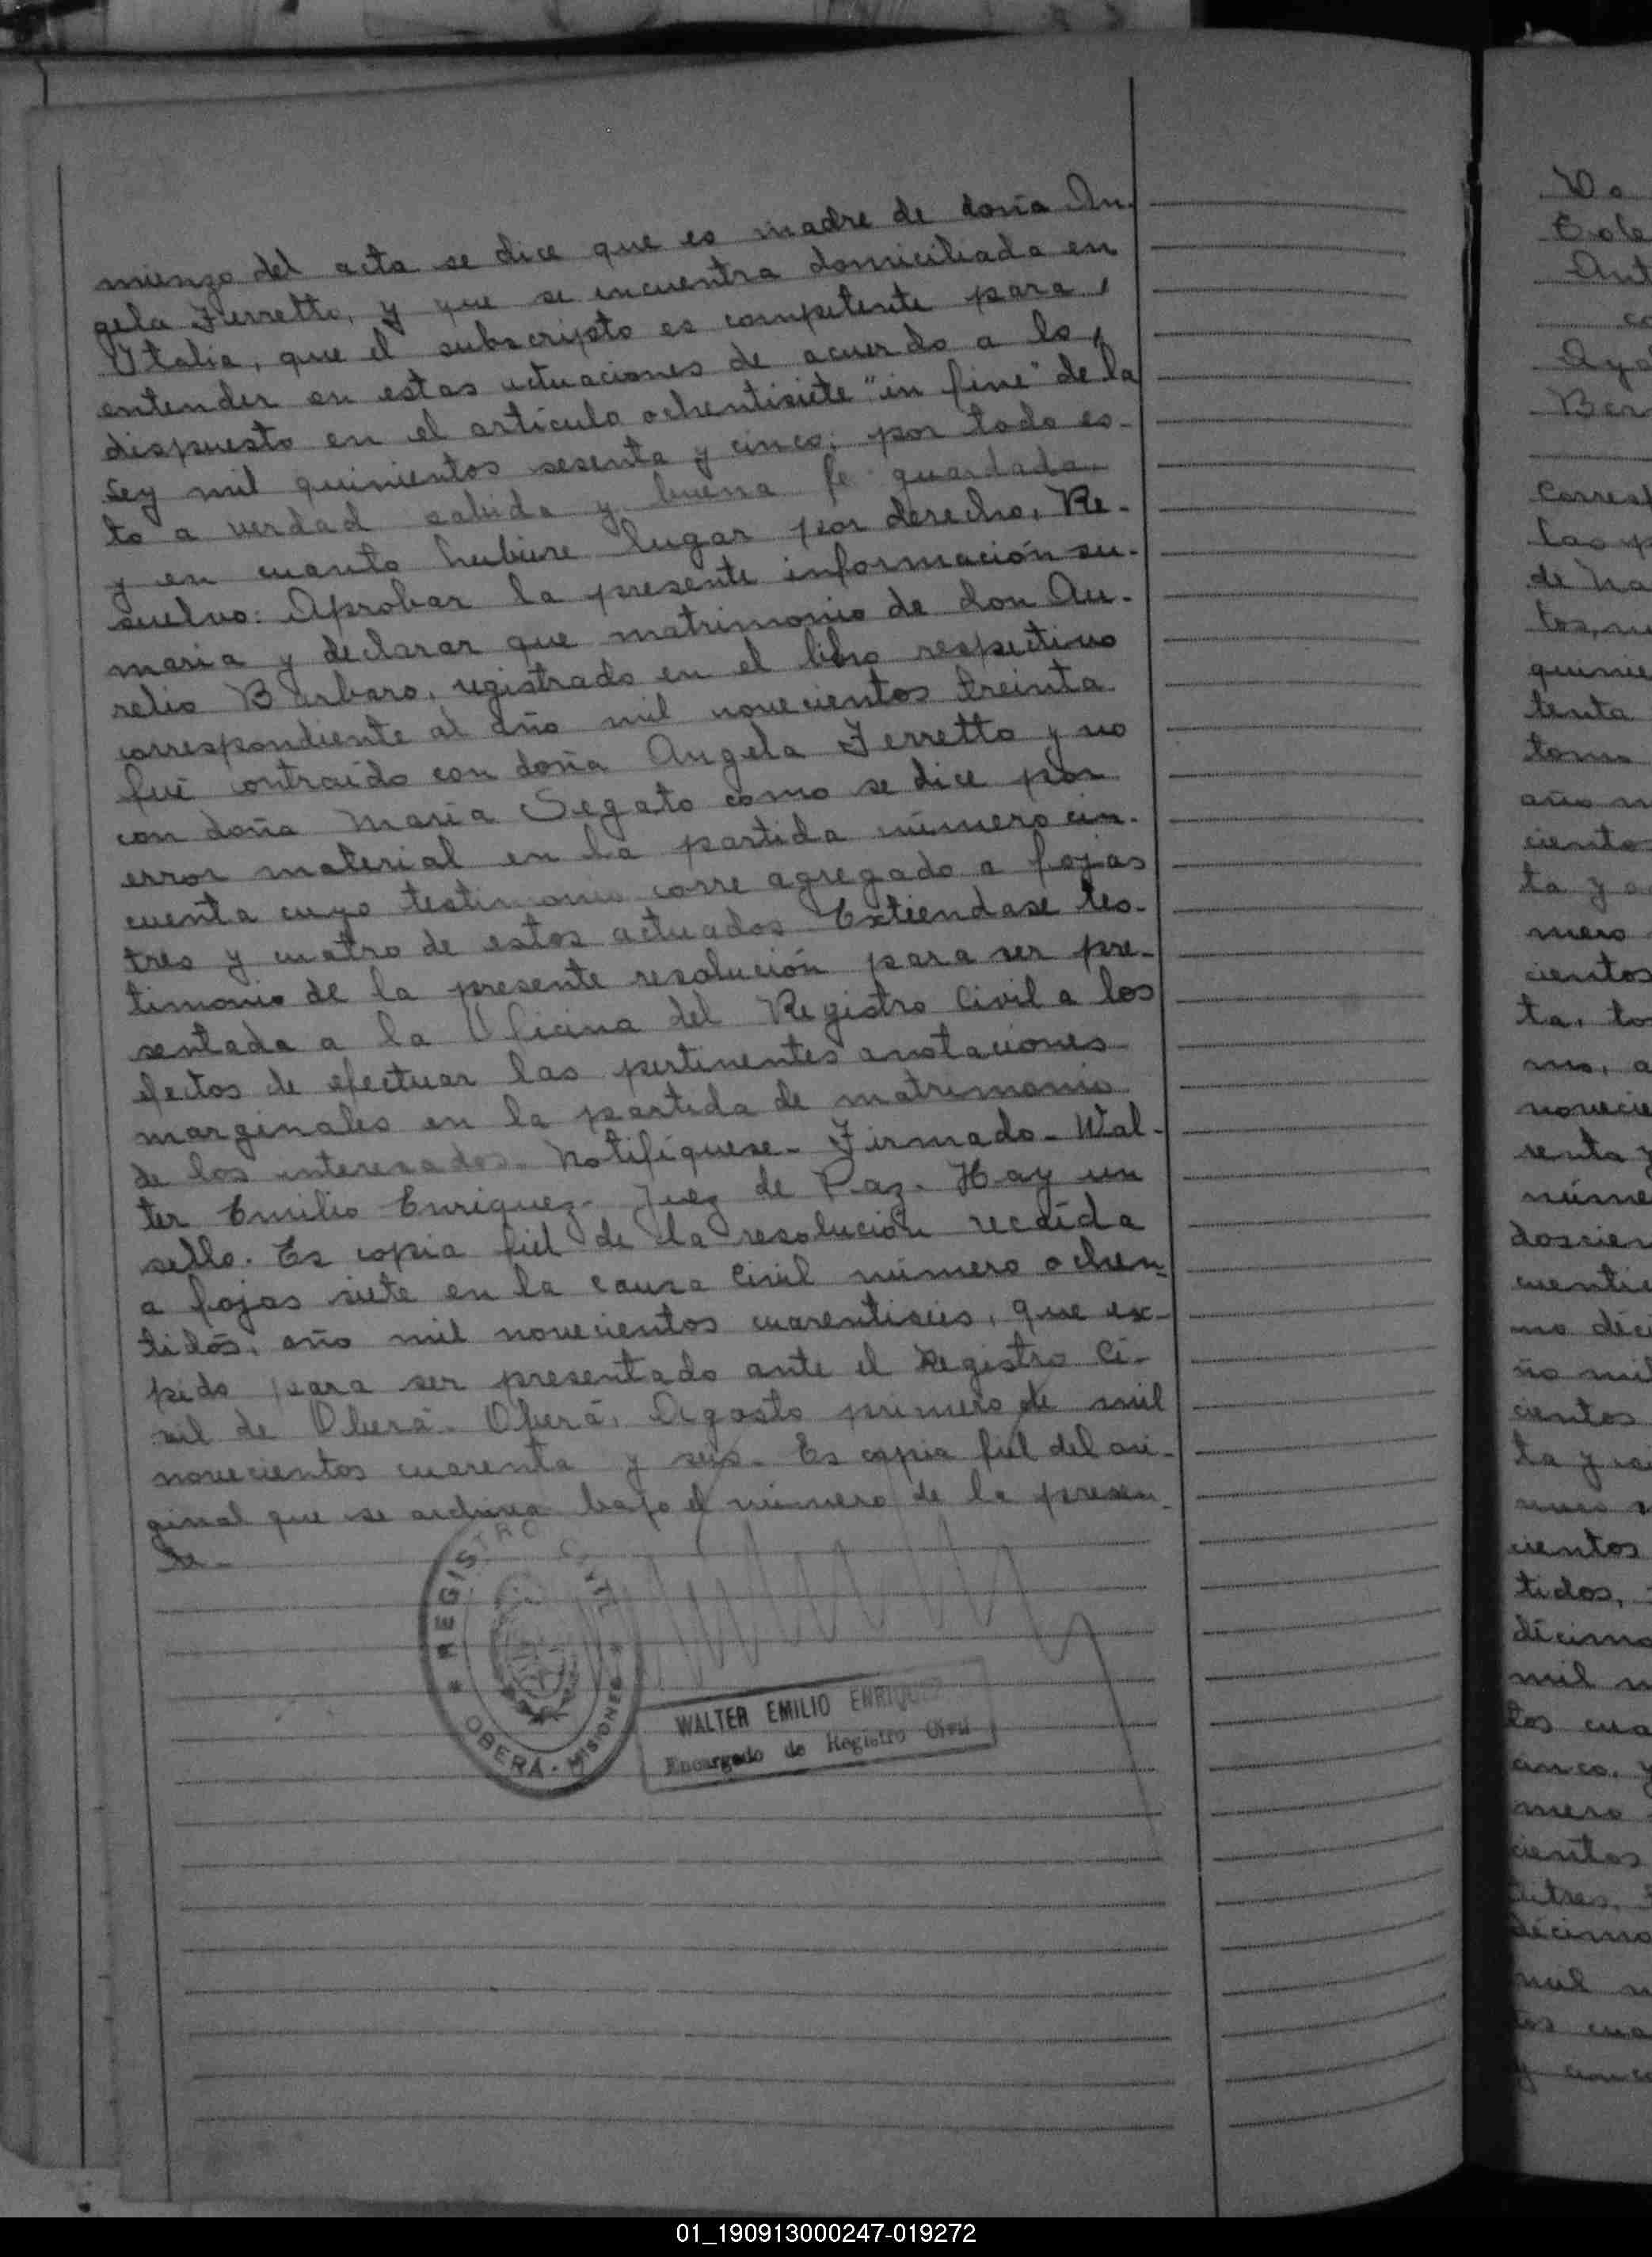 mienzo del acta se dice que es madre de doña An-
gela Ferretto, y que se encuentra domiciliada en
Italia, que el subscripto es competente para
entender en estas actuaciones de acuerdo a lo
dispuesto en el artículo ochentisiete "in fine" de la
Ley mil quinientos sesenta y cinco; por todo es-
to a verdad sabida y buena fe guardada
y en cuanto hubiere lugar por derecho, Re-
suelvo: Aprobar la presente información su-
maria y declarar que matrimonio de don Au-
relio Bárbaro, registrado en el libro respectivo
correspondiente al año mil novecientos treinta
fué contraído con doña Angela Ferretto y no
con doña María Segato como se dice por
error material en la partida número cin-
cuenta cuyo testimonio corre agregado a fojas
tres y cuatro de estos actuados. Extiendase tes-
timonio de la presente resolución para ser pre-
sentada a la Oficina del Registro Civil a los
efectos de efectuar las pertinentes anotaciones
marginales en la partida de matrimonio
de los interesados. Notifíquese. Firmado. Wal-
ter Emilio Enriquez. Juez de Paz. Hay un
sello. Es copia fiel de la resolución recaída
a fojas siete en la causa Civil número ochen-
tidós, año mil novecientos cuarentiseis, que ex-
pido para ser presentado ante el Registro Ci-
vil de Oberá. Oberá, Agosto primero de mil
novecientos cuarenta y seis. Es copia fiel del ori-
ginal que se archiva bajo el número de la presen-
te.
REGISTRO CIVIL
OBERÁ - MISIONES
WALTER EMILIO ENRIQUEZ
Encargado de Registro Civil
Ant
Ber
de
quinie
tenta
ciento
ta y
mero
cientos
ta, to
novecie
senta y
núme
doscien
cuenti
mo déc
ño mil
cientos
cientos
tidos,
décimo
mil n
tos cua
cinco, y
mero
cientos
décimo
mil
tos cua
01_190913000247-019272